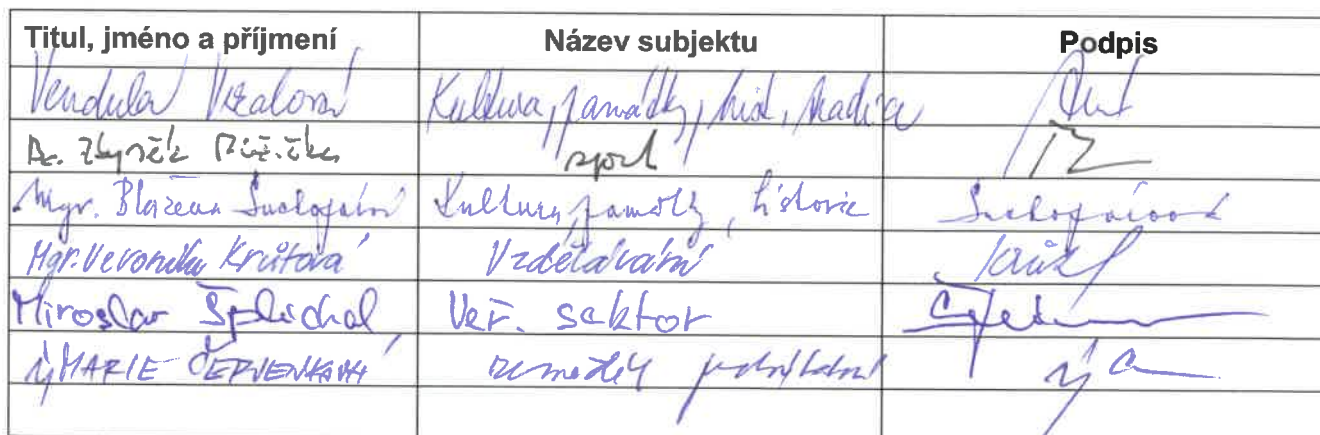 Titul, jméno a příjmení Název subjektu Podpis
Vendula Vrzalová Kultura, památky, hist, tradice
Zbyněk Růžička sport
Mgr. Blažena Suchopárová Kultura, památky, historie Suchopárová
Mgr. Veronika Krůtová Vzdělávání
Miroslav Šplíchal Veř. sektor
MARIE ČERVENKOVÁ podnikání